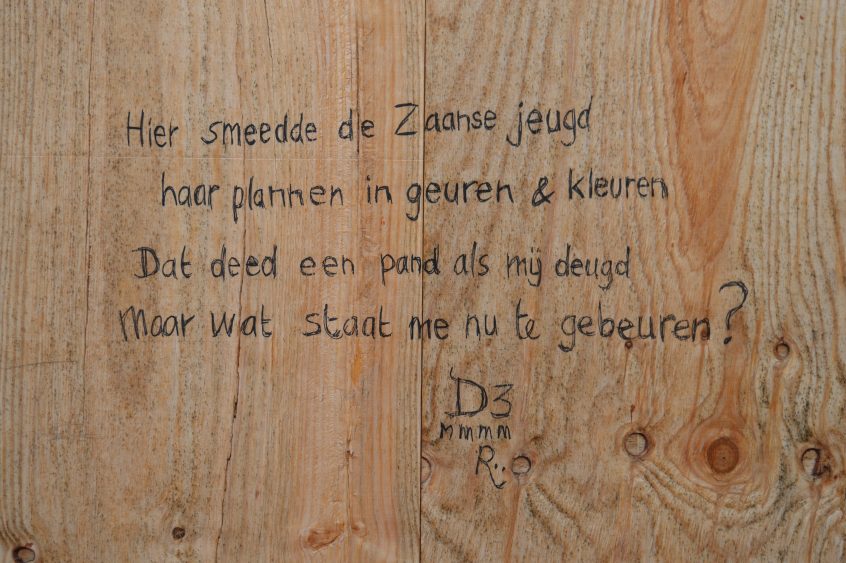 Hier smeedde de Zaanse jeugd
haar plannen in geuren & kleuren
Dat deed een pand als mij deugd
Maar wat staat me nu te gebeuren?
D3
mmmm
R..